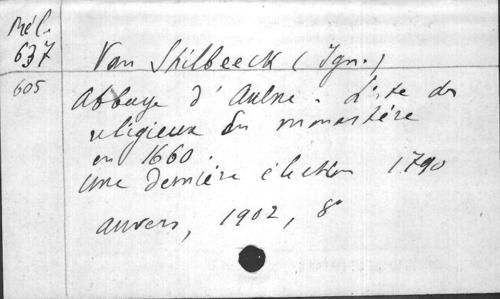 Mél.
637
Van Spilbeeck (Ign.)
605
Abbaye d'Aulne. Liste des
religieux du monastère
en 1660.
une dernière élection 1790
Anvers, 1902, 8°